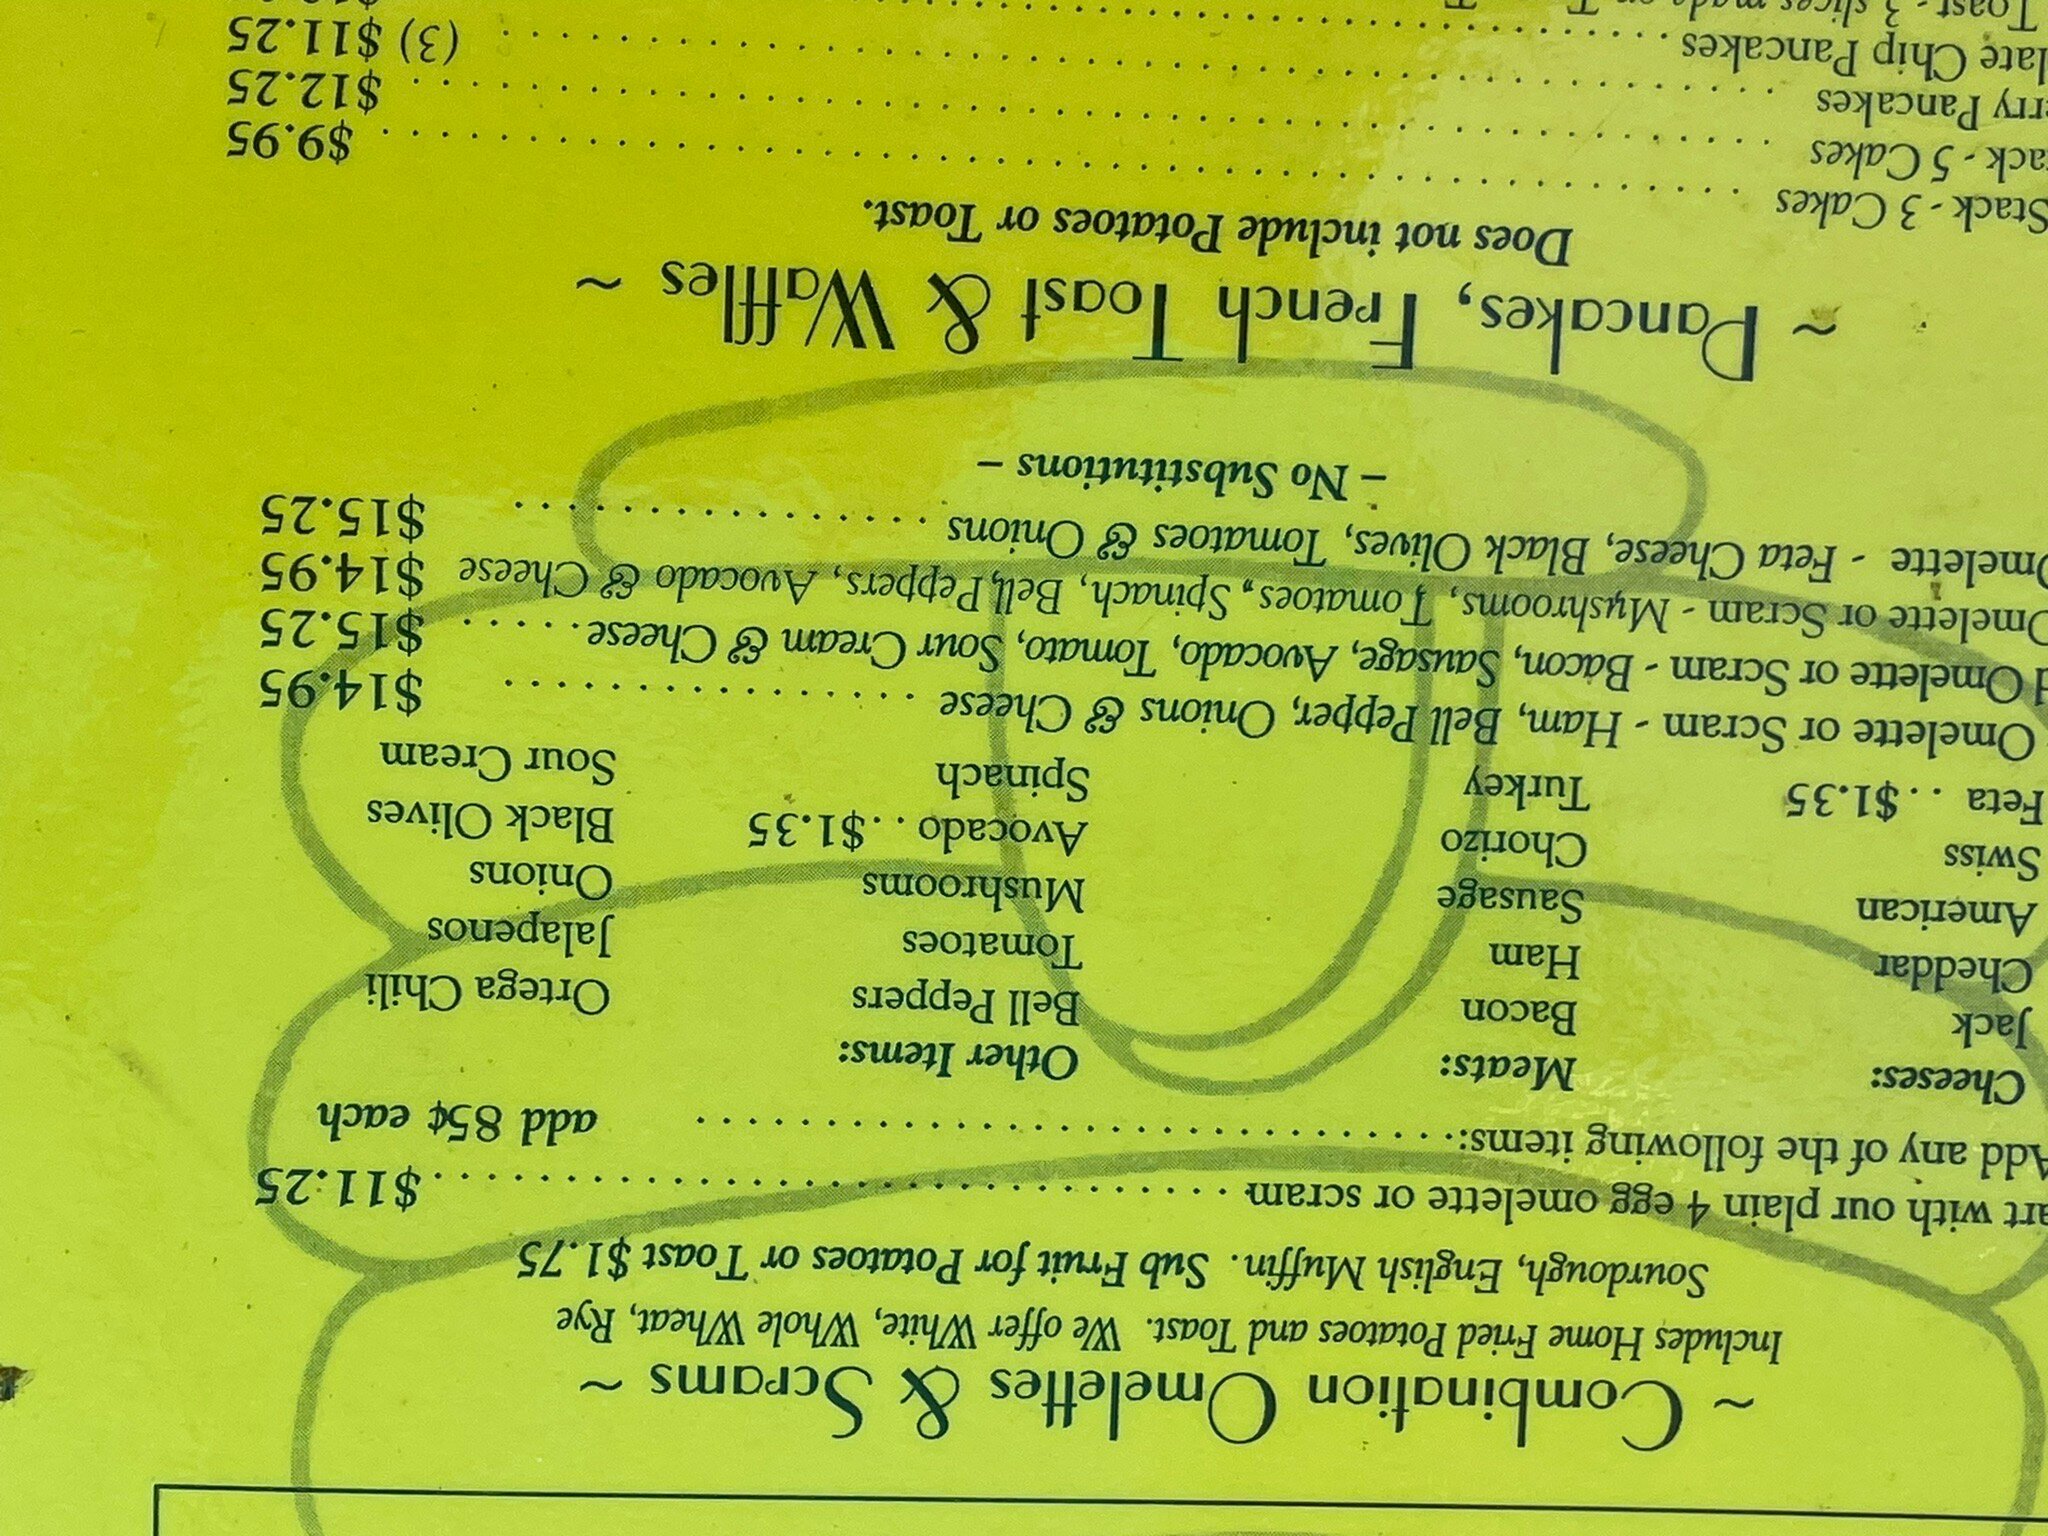 ~ Combination Omelettes & Scrams ~
Includes Home Fried Potatoes and Toast. We offer White, Whole Wheat, Rye
Sourdough, English Muffin. Sub Fruit for Potatoes or Toast $1.75
art with our plain 4 egg omelette or scram . . . . . . . . . . $11.25
Add any of the following items: . . . . . . . . . . add 85¢ each
Cheeses: Meats: Other Items:
Jack Bacon Bell Peppers Ortega Chili
Cheddar Ham Tomatoes Jalapenos
American Sausage Mushrooms Onions
Swiss Chorizo Avocado . . $1.35 Black Olives
Feta . . $1.35 Turkey Spinach Sour Cream
Omelette or Scram - Ham, Bell Pepper, Onions & Cheese . . . . . . . . . . $14.95
d Omelette or Scram - Bacon, Sausage, Avocado, Tomato, Sour Cream & Cheese . . . . . . $15.25
Omelette or Scram - Mushrooms, Tomatoes, Spinach, Bell Peppers, Avocado & Cheese $14.95
Omelette - Feta Cheese, Black Olives, Tomatoes & Onions . . . . . . . . . . $15.25
– No Substitutions –
~ Pancakes, French Toast & Waffles ~
Does not include Potatoes or Toast.
Stack - 3 Cakes . . . . . . . . . . $9.95
ack - 5 Cakes . . . . . . . . . . $12.25
rry Pancakes . . . . . . . . . . (3) $11.25
late Chip Pancakes . . . . . . . . . .
Toast - 3 slices made on